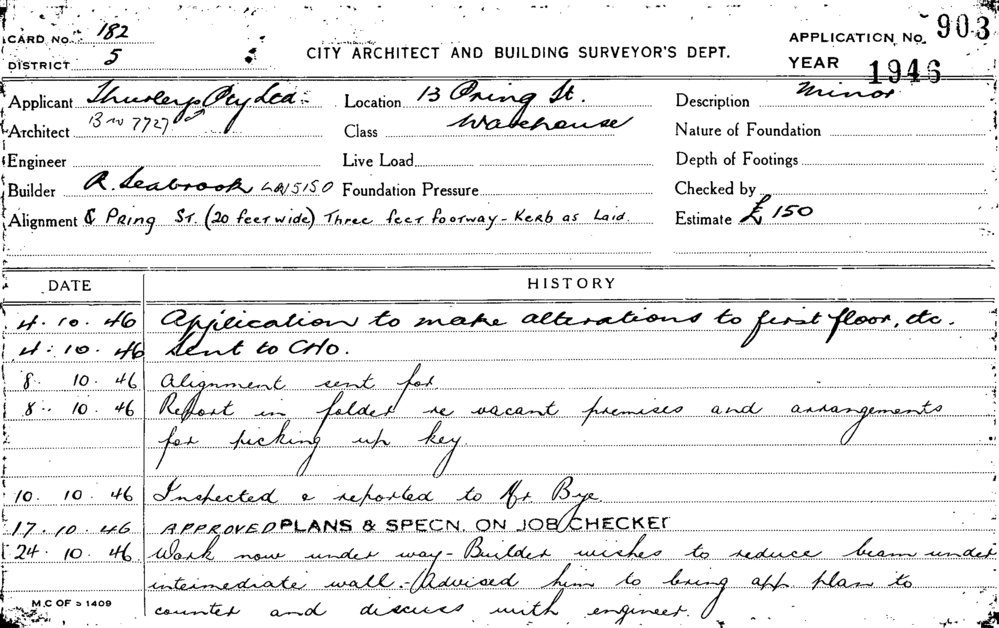 CARD No. 182
DISTRICT 5
CITY ARCHITECT AND BUILDING SURVEYOR'S DEPT.
APPLICATION No. 903
YEAR 1946
Applicant Thurleys Pty Ltd. Location 13 Pring St. Description Minor
Architect BW 7727 Class Warehouse Nature of Foundation
Engineer Live Load Depth of Footings
Builder R. Seabrook Foundation Pressure Checked by
Alignment & Pring St. (20 feet wide) Three feet footway - Kerb as Laid. Estimate £150
DATE HISTORY
4. 10. 46 Application to make alterations to first floor, etc.
4. 10. 46 Sent to CHO.
8. 10. 46 Alignment sent for
8. 10. 46 Report in folder re vacant premises and arrangements
for picking up key
10. 10. 46 Inspected & reported to Mr Bye
17. 10. 46 APPROVED PLANS & SPECN. ON JOB CHECKED
24. 10. 46 Work now under way - Builder wishes to reduce beam under
intermediate wall. - Advised him to bring app plan to
counter and discuss with engineer.
M.C OF 1409